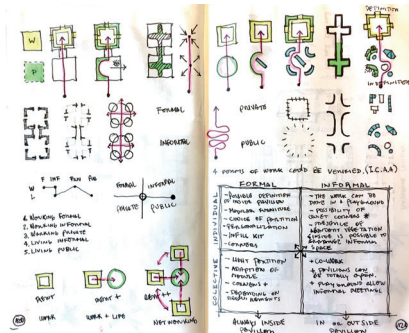 W
P
FORMAL
INFORMAL
F INF PRIV PUB
W
L
FORMAL INFORMAL
PRIVATE PUBLIC
1. WORKING FORMAL
2. WORKING INFORMAL
3. WORKING PRIVATE
4. LIVING INFORMAL
5. LIVING PUBLIC
POINT
WORK
POINT +
WORK + LIFE
POINT ++
NETWORKING
DEFINITION
PRIVATE
PUBLIC
4 POINTS OF WORK COULD BE VERIFIED. (I.C.A.A)
FORMAL
INFORMAL
INDIVIDUAL
COLLECTIVE
- POSSIBLE DEFINITION
OF INSIDE PAVILION
- MODULAR FURNITURE
- CHOICE OF PARTITION
- PERSONALIZATION
- INFILL KIT
- CORNERS
- THE WORK CAN BE
DONE IN A PLAYGROUND
- POSSIBILITY OF
QUIET CORNERS
VEGETATION
IS POSSIBLE TO
INFORMAL
SPACE
- LIGHT PARTITION
- ADAPTION OF
MODULE
- CORNERS
- DEPENDING ON
- CO-WORK
- PAVILIONS CAN
BE TOTALLY OPEN.
- PLAYGROUNDS ALLOW
INFORMAL MEETING
ALWAYS INSIDE
PAVILION
IN OR OUTSIDE
PAVILION